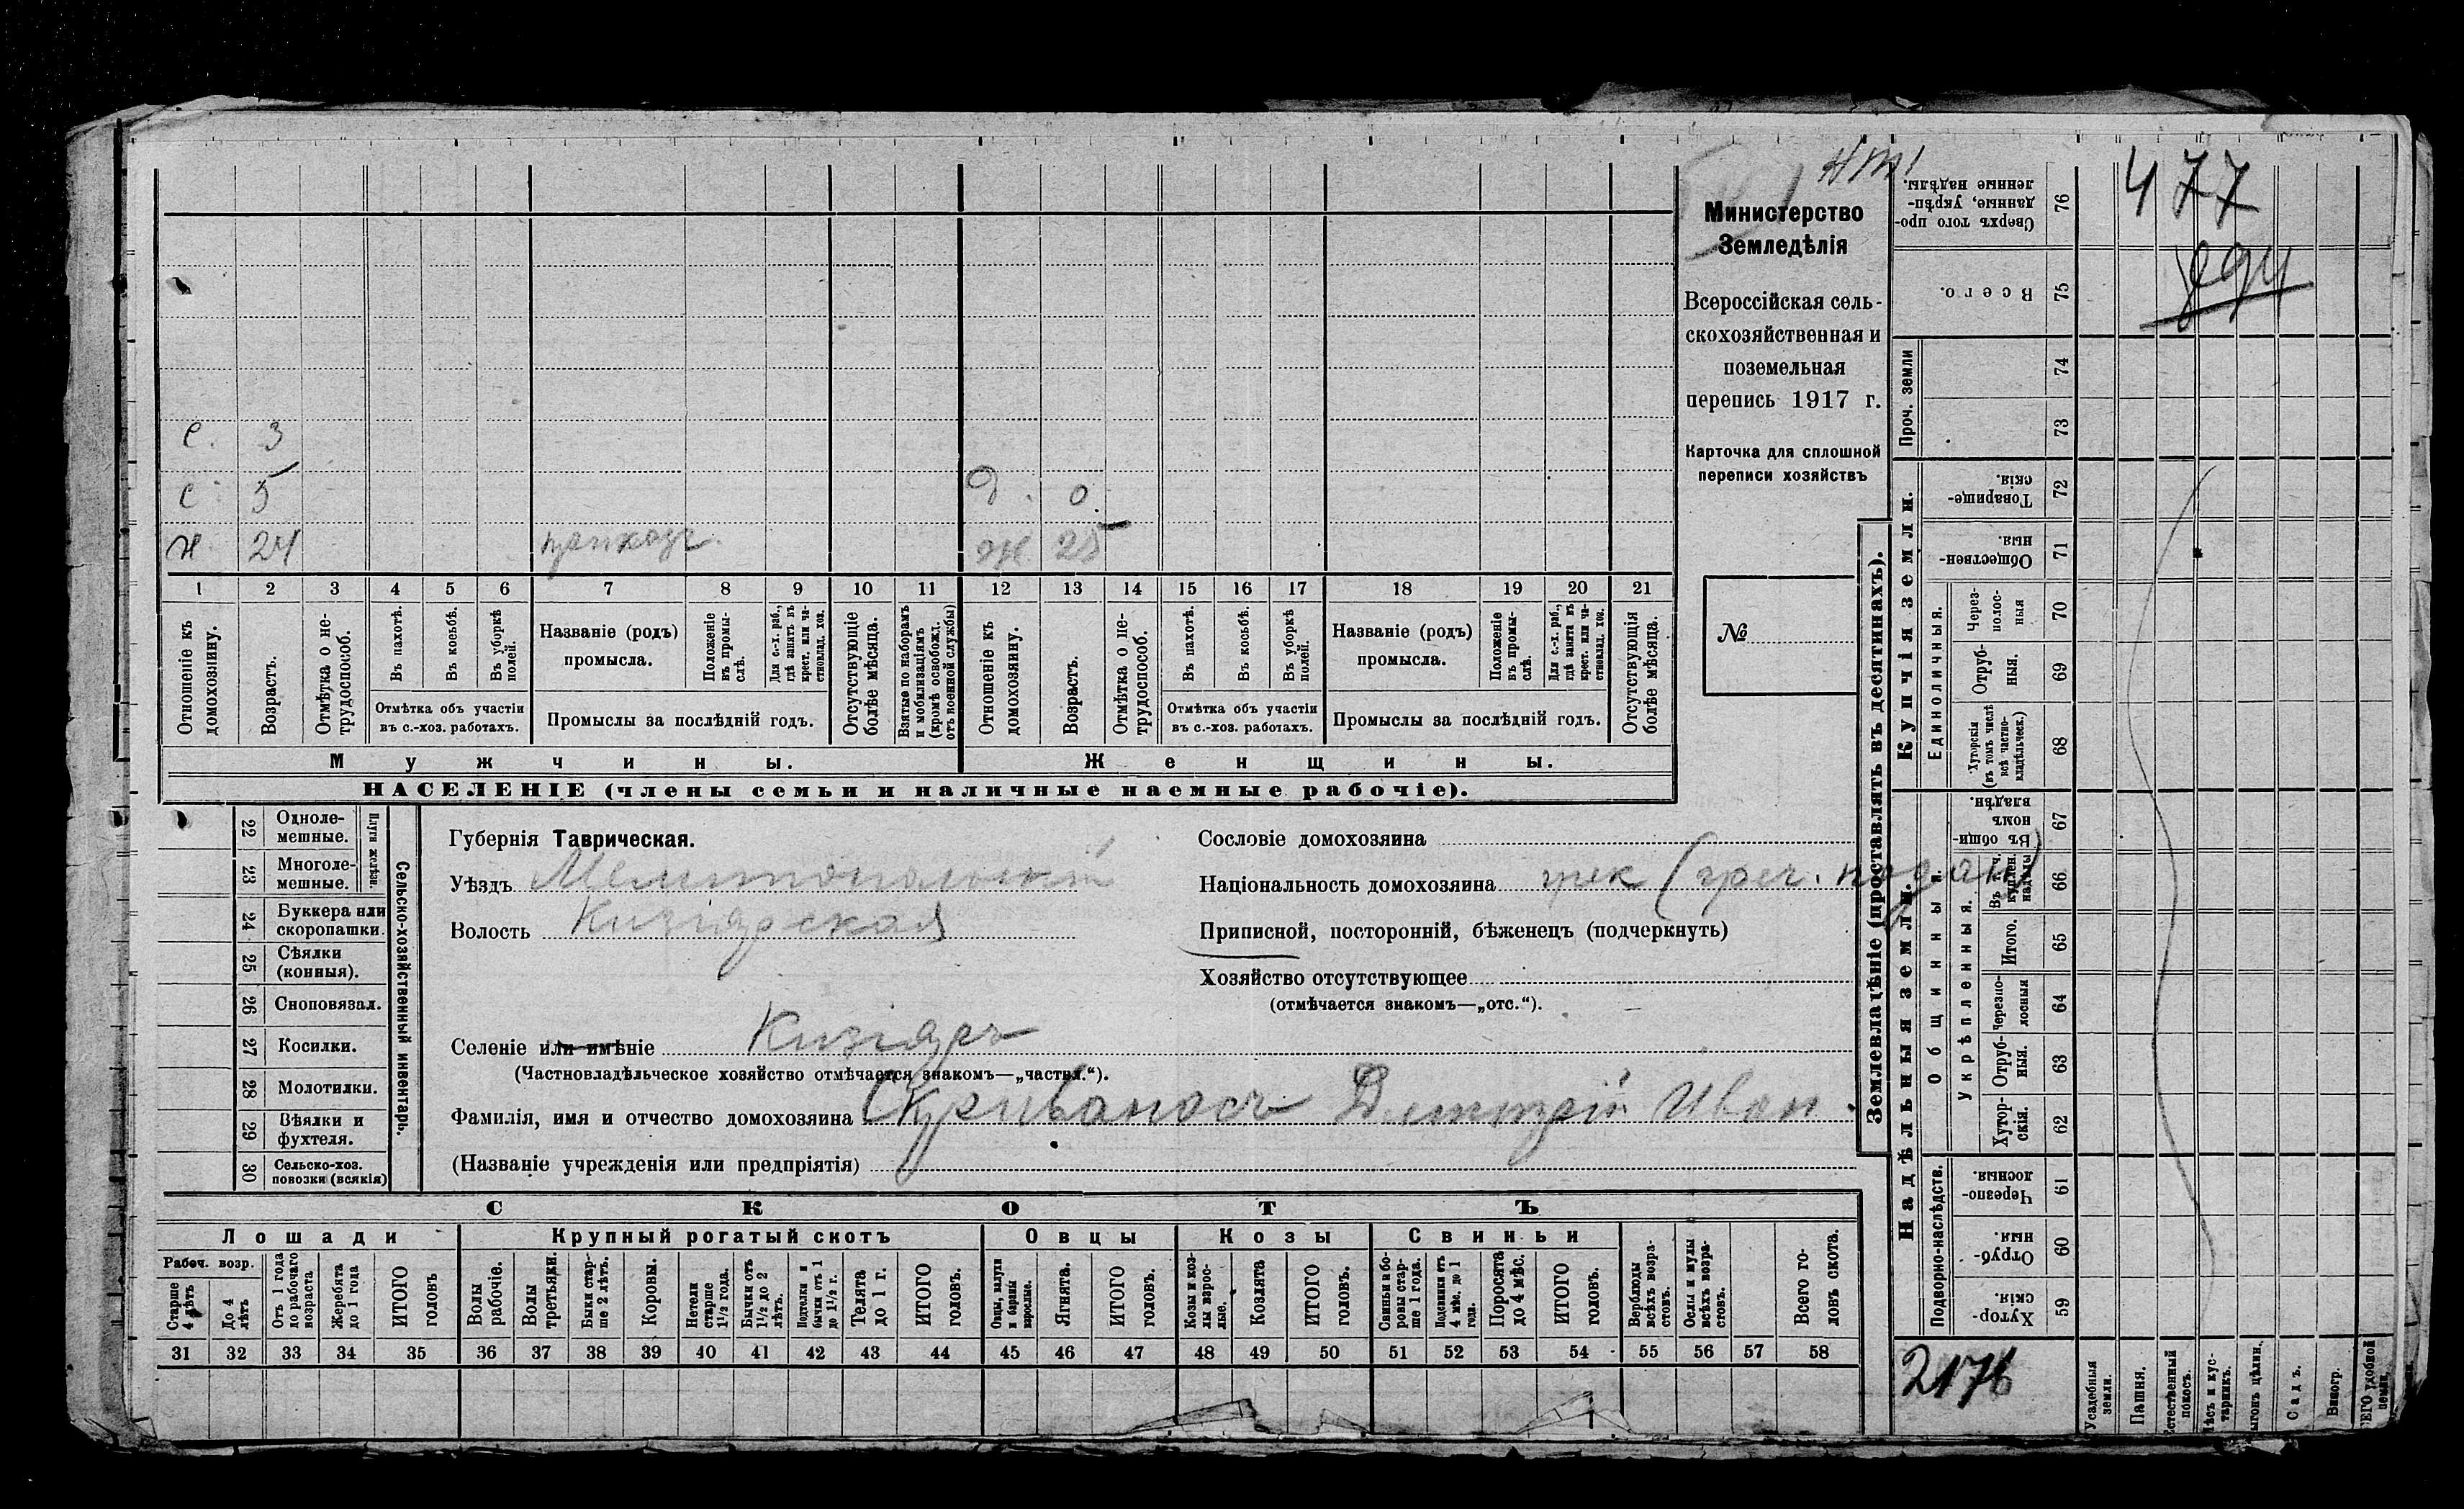 477
894
Министерство
Земледѣлія
Всероссійская сель-
скохозяйственная и
поземельная
перепись 1917 г.
Карточка для сплошной
переписи хозяйствъ
№
с. 3
с. 5 д. 0
х 24 ж. 25
1 2 3 4 5 6 7 8 9 10 11 12 13 14 15 16 17 18 19 20 21
Отношеніе къ домохозяину.
Возрастъ.
Отмѣтка о не-трудоспособ.
Въ пахотѣ.
Въ косьбѣ.
Въ уборкѣ полей.
Отмѣтка объ участіи
въ с.-хоз. работахъ.
Названіе (родъ)
промысла.
Положеніе въ промы-слѣ.
Для с.-х. раб., гдѣ занятъ въ крест. или ча-стновлад. хоз.
Промыслы за послѣдній годъ.
Отсутствующіе болѣе мѣсяца.
Взятые по наборамъ и мобилизаціямъ (кромѣ освобожд. отъ военной службы)
Отношеніе къ домохозяину.
Возрастъ.
Отмѣтка о не-трудоспособ.
Въ пахотѣ.
Въ косьбѣ.
Въ уборкѣ полей.
Отмѣтка объ участіи
въ с.-хоз. работахъ.
Названіе (родъ)
промысла.
Положеніе въ промы-слѣ.
Для с.-х. раб., гдѣ занята въ крест. или ча-стновлад. хоз.
Промыслы за послѣдній годъ.
Отсутствующія болѣе мѣсяца.
Мужчины.
Женщины.
НАСЕЛЕНІЕ (члены семьи и наличные наемные рабочіе).
Сельско-хозяйственный инвентарь.
Плуги желѣзн.
22 Одноле-мешные.
23 Многоле-мешные.
24 Буккера или скоропашки.
25 Сѣялки (конныя).
26 Сноповязал.
27 Косилки.
28 Молотилки.
29 Вѣялки и фухтеля.
30 Сельско-хоз. повозки (всякія)
Губернія Таврическая.
Уѣздъ Мелитопольскій
Волость Кизіярская
Селеніе или имѣніе Кизіяръ
(Частновладѣльческое хозяйство отмѣчается знакомъ—„частвл.“).
Фамилія, имя и отчество домохозяина Скриваносъ Дмитрій Иван.
(Названіе учрежденія или предпріятія)
Сословіе домохозяина
Національность домохозяина грек (греч. подан)
Приписной, посторонній, бѣженецъ (подчеркнуть)
Хозяйство отсутствующее
(отмѣчается знакомъ—„отс.“).
СКОТЪ
Лошади
Крупный рогатый скотъ
Овцы
Козы
Свиньи
Рабоч. возр.
Старше 4 лѣтъ
До 4 лѣтъ
Отъ 1 года до рабочаго возраста
Жеребята до 1 года
ИТОГО головъ
Волы рабочіе.
Волы третьяки.
Быки стар-ше 2 лѣтъ.
Коровы.
Нетели старше 1½ года.
Бычки отъ 1½ до 2 лѣтъ.
Подтелки и бычки отъ 1 до 1½ г.
Телята до 1 г.
ИТОГО головъ.
Овцы, валухи и бараны взрослые.
Ягнята.
ИТОГО головъ.
Козы и коз-лы взрос-лые.
Козлята
ИТОГО головъ.
Свиньи и бо-ровы стар-ше 1 года.
Подсвинки отъ 4 мѣс. до 1 года.
Поросята до 4 мѣс.
ИТОГО головъ.
Верблюды всѣхъ возра-стовъ.
Ослы и мулы всѣхъ возра-стовъ.
Всего го-ловъ скота.
31 32 33 34 35 36 37 38 39 40 41 42 43 44 45 46 47 48 49 50 51 52 53 54 55 56 57 58
Землевладѣніе (проставлять въ десятинахъ).
Проч. земли
Купчія земли.
Единоличныя.
Надѣльныя земли.
Общинныя.
Укрѣпленныя.
Подворно-наслѣдств.
Сверхъ того про-данные, укрѣп-ленные надѣлы. 76
Всего. 75
74
73
Товарище-скія. 72
Обществен-ныя. 71
Через-полос-ныя 70
Отруб-ныя. 69
Хуторскія (въ томъ числѣ всѣ частно-владѣльческ.) 68
Въ общин-номъ владѣн. 67
Въ т. ч. куплен. надѣлы 66
Итого. 65
Черезпо-лосныя 64
Отруб-ныя. 63
Хутор-скія. 62
Черезпо-лосныя. 61
Отруб-ныя. 60
Хутор-скія. 59
2176
Усадебныя земли.
Пашня.
Естественный покосъ.
Лѣсъ и кус-тарникъ.
Выгонъ цѣлин.
Садъ.
Виногр.
ВСЕГО удобной земли.